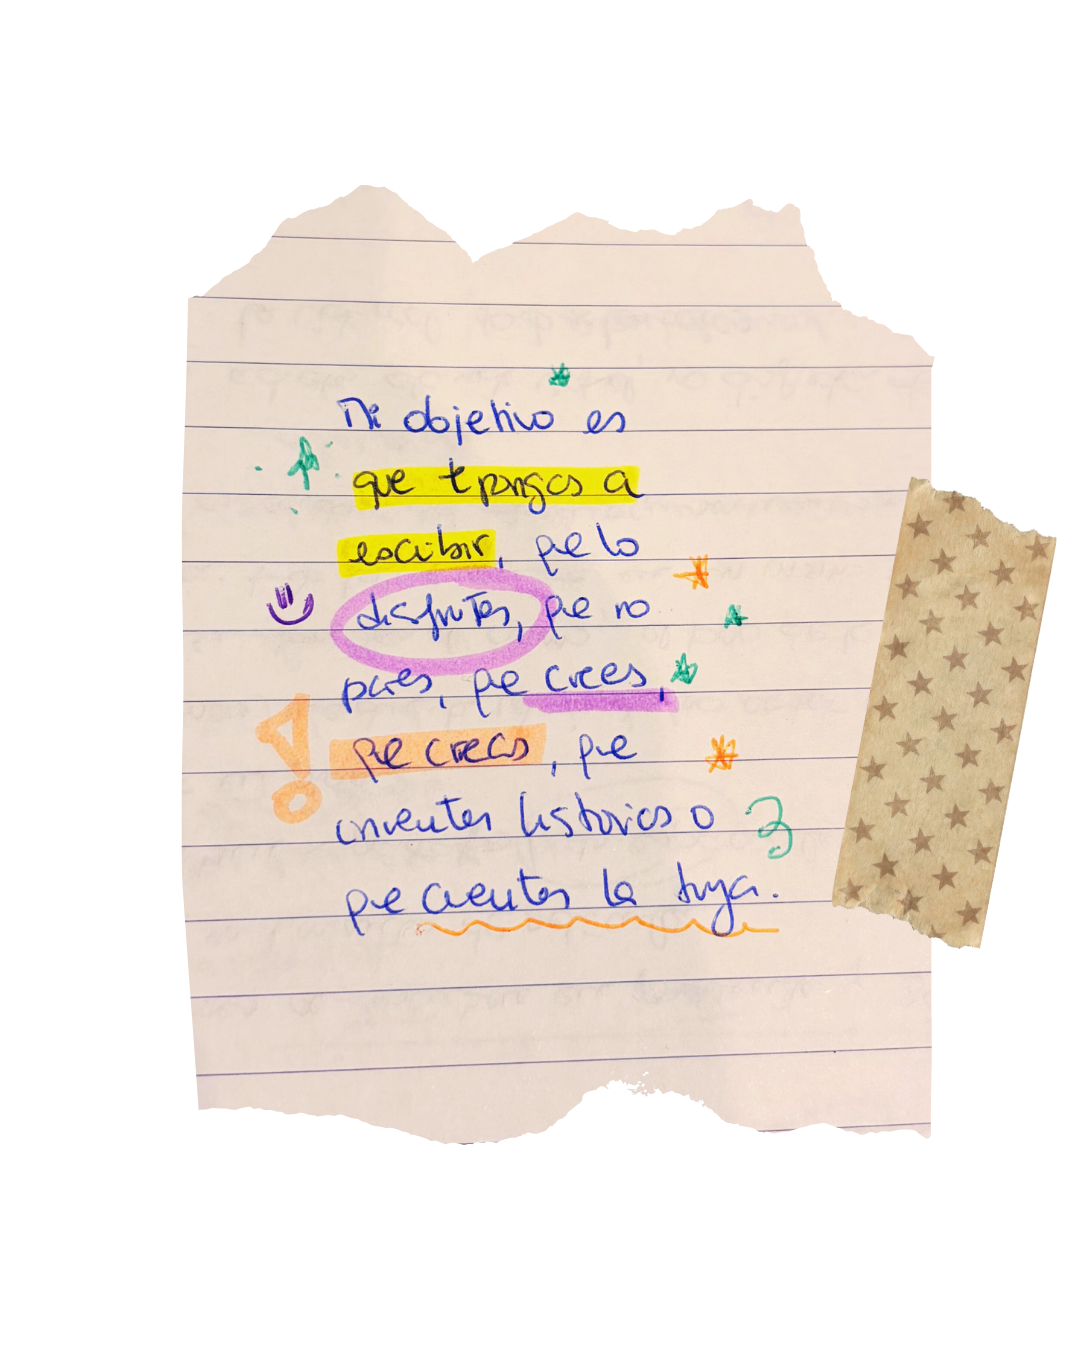 Mi objetivo es
que t pongas a
escribir, que lo
disfrutes, que no
pares, que crees,
que creas, que
inventes historias o
que cuentes la tuya.